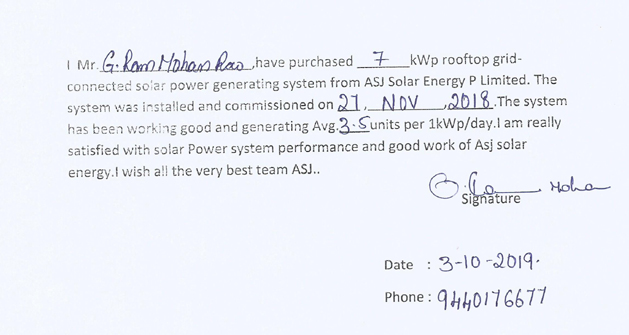 I Mr. G. Ram Mohan Rao ,have purchased 7 kWp rooftop grid-
connected solar power generating system from ASJ Solar Energy P Limited. The
system was installed and commissioned on 27, NOV ,2018.The system
has been working good and generating Avg.3.5units per 1kWp/day.I am really
satisfied with solar Power system performance and good work of Asj solar
energy.I wish all the very best team ASJ..
G. Ram Mohan
Signature
Date : 3-10-2019.
Phone : 9440176677